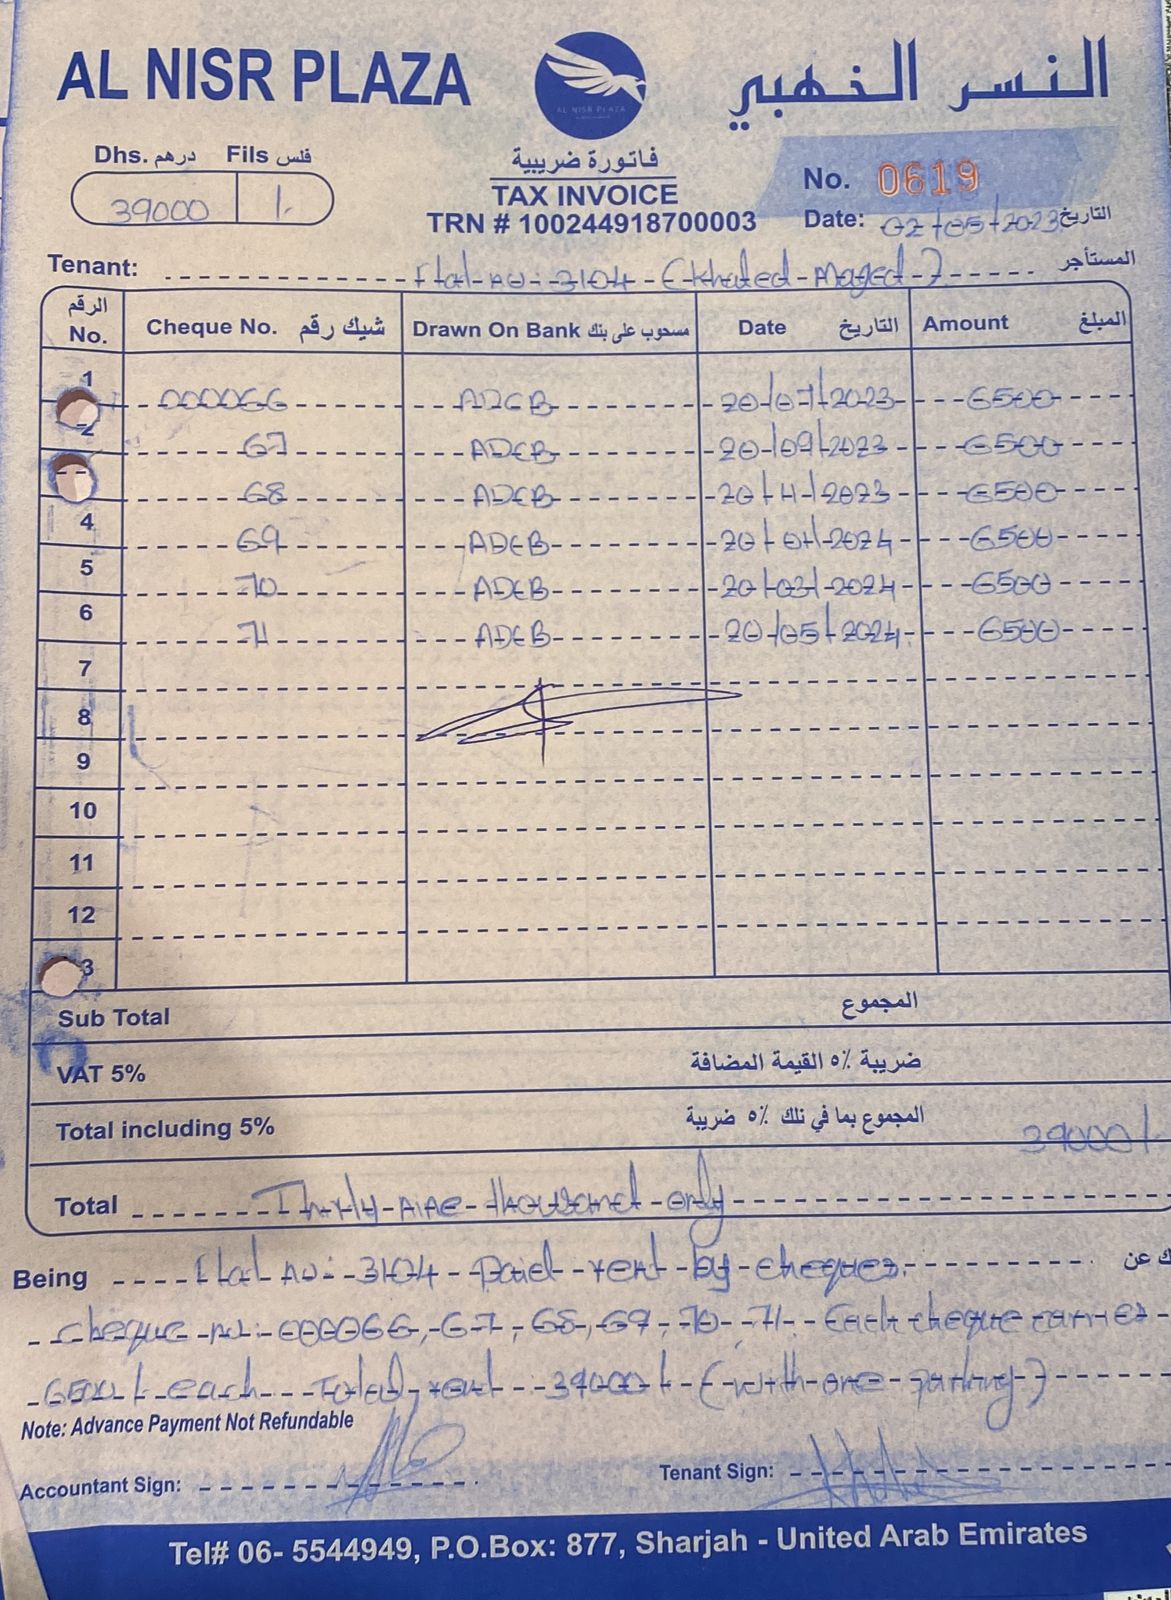 AL NISR PLAZA
AL NISR PLAZA
النسر الذهبي
Dhs. درهم Fils فلس
39000 /.
فاتورة ضريبية
TAX INVOICE
TRN # 100244918700003
No. 0619
Date: 02/05/2023 التاريخ
Tenant: Flat no: 3104 (Khaled Maged) المستأجر
الرقم No. Cheque No. شيك رقم Drawn On Bank مسحوب على بنك Date التاريخ Amount المبلغ
1 000066 ADCB 20/07/2023 6500
2 67 ADCB 20/09/2023 6500
68 ADCB 20/11/2023 6500
4 69 ADCB 20/01/2024 6500
5 70 ADCB 20/03/2024 6500
6 71 ADCB 20/05/2024 6500
7
8
9
10
11
12
3
Sub Total المجموع
VAT 5% ضريبة ٥٪ القيمة المضافة
Total including 5% المجموع بما في ذلك ٥٪ ضريبة 39000/.
Total Thirty nine thousand only
Being Flat no: 3104 Paid rent by cheques. ك عن
Cheque no: 000066, 67, 68, 69, 70, 71. Each cheque carries
6500/- each Total rent 39000/- (with one parking)
Note: Advance Payment Not Refundable
Accountant Sign: Tenant Sign:
Tel# 06- 5544949, P.O.Box: 877, Sharjah - United Arab Emirates